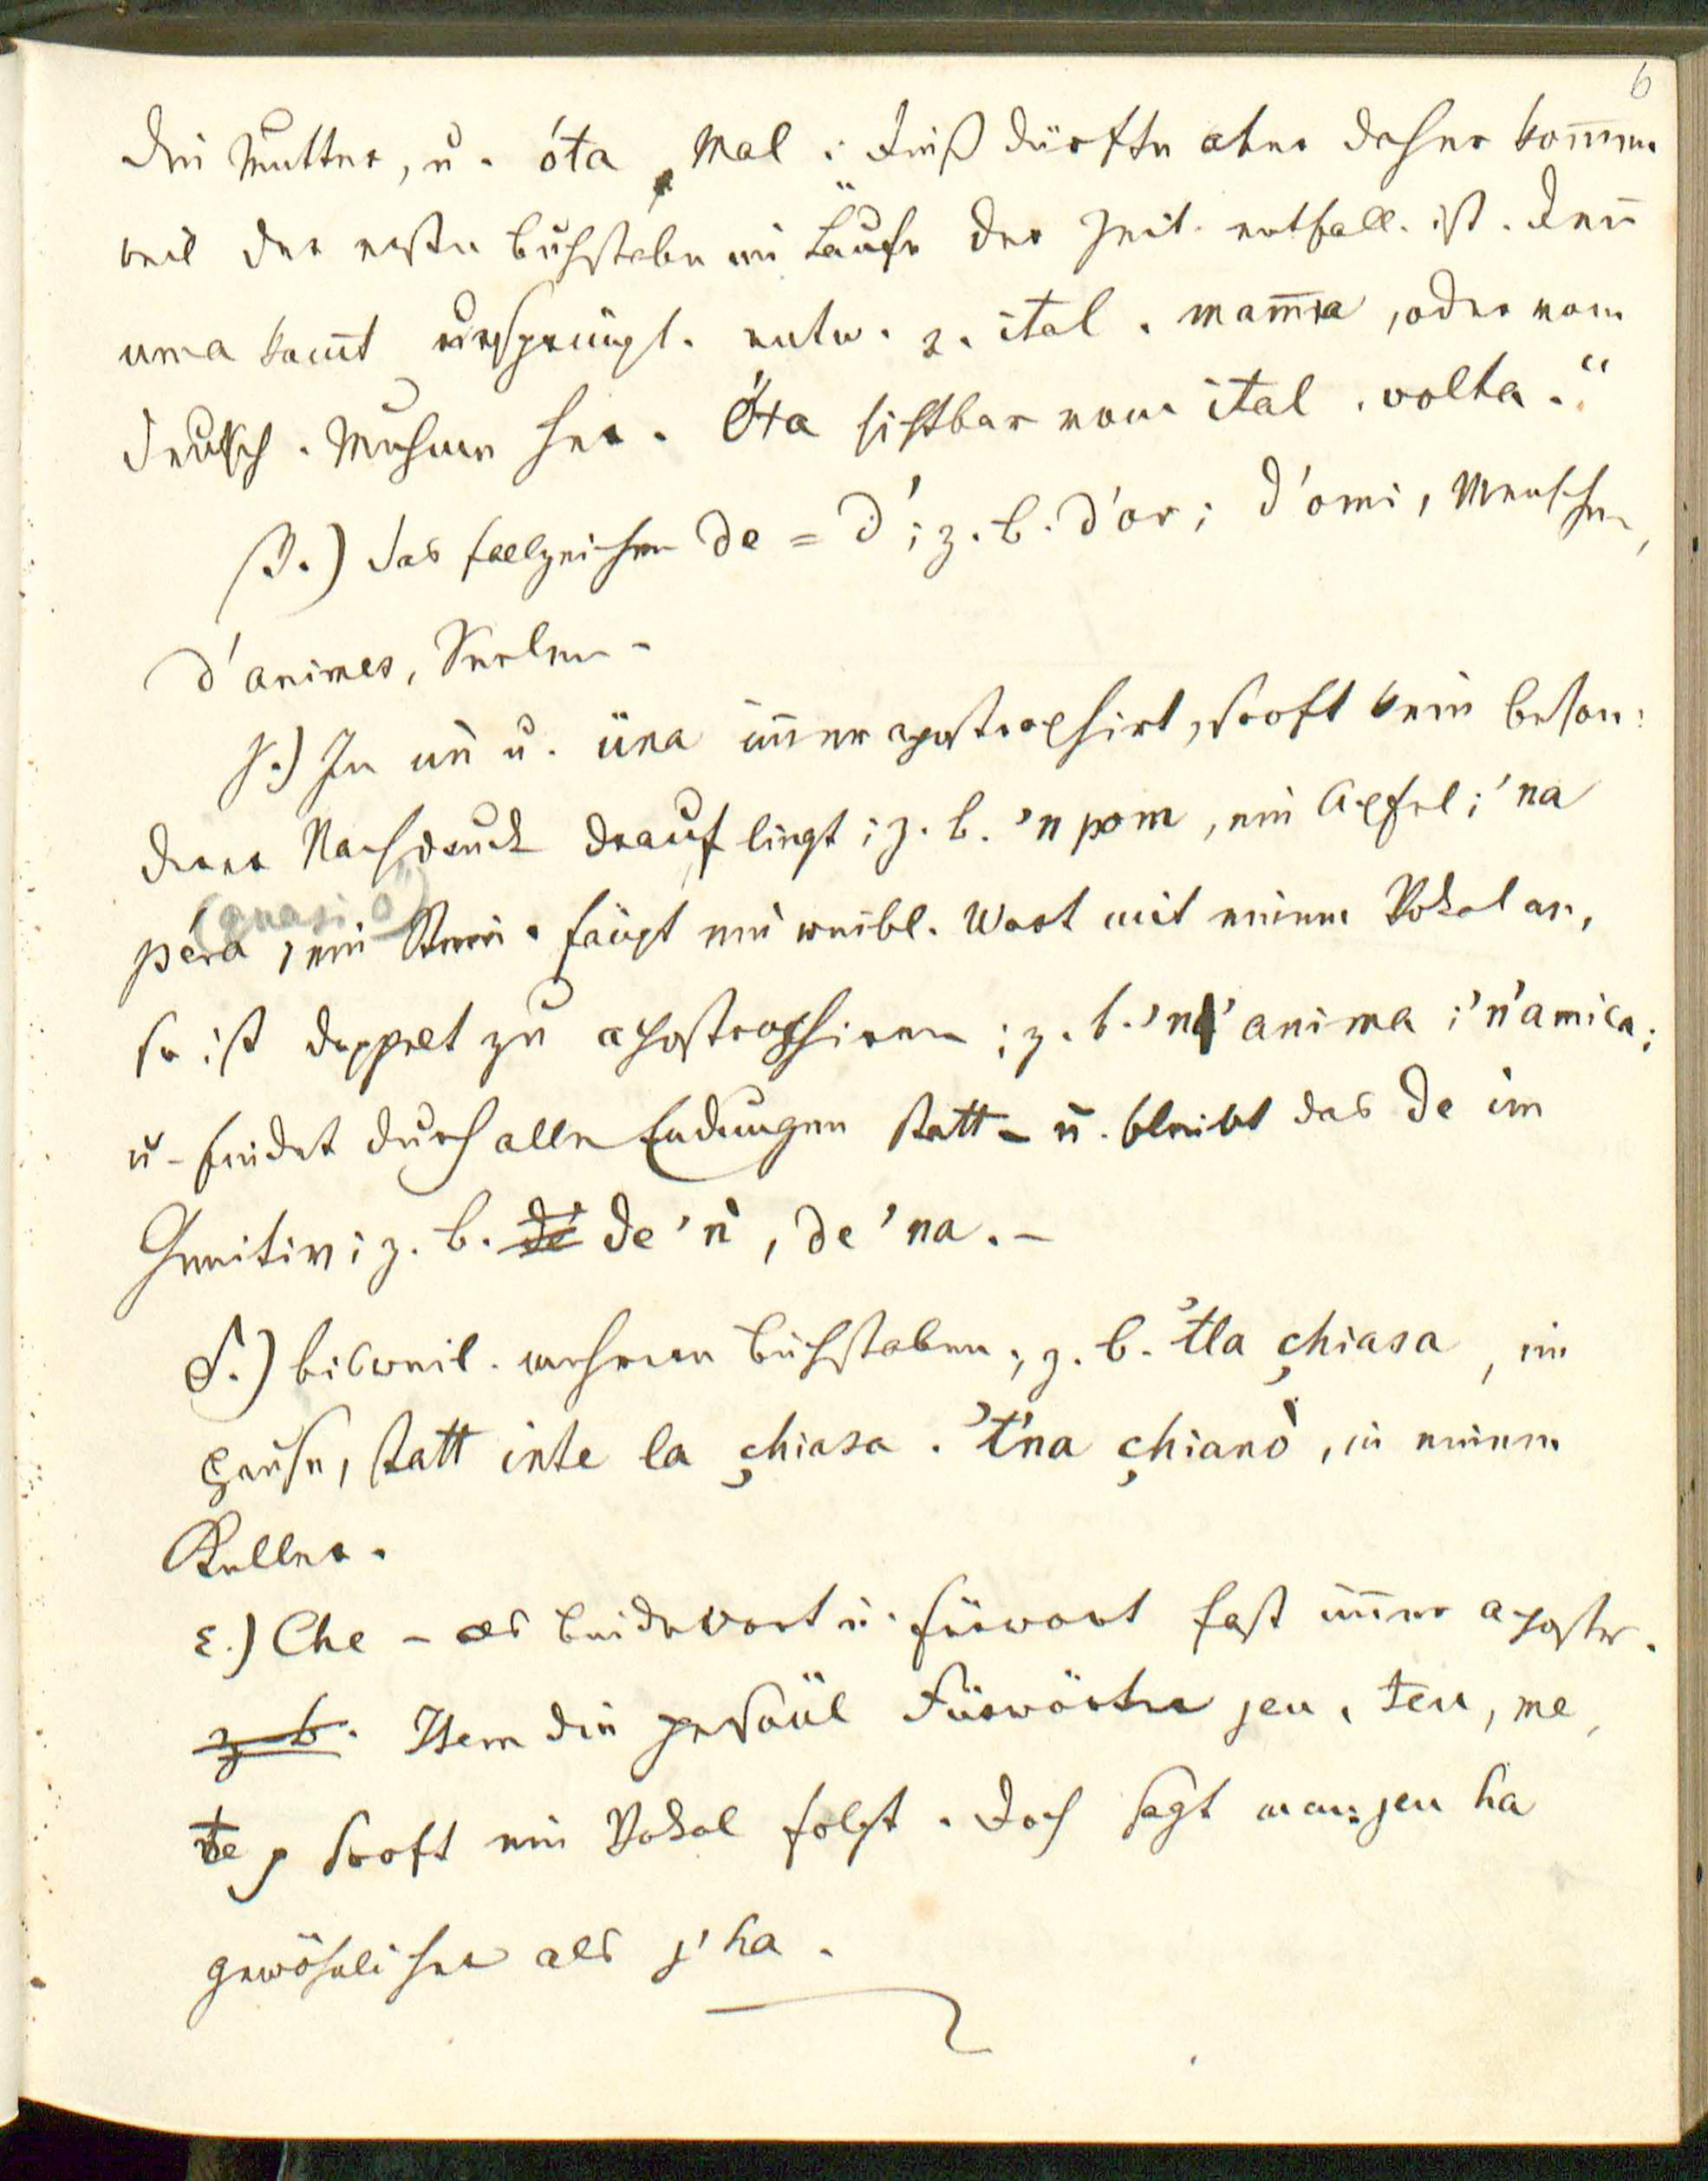 6
die Mutter, u. óta, Mal: dieß dürfte aber daher kom̄en
weil der erste Buchstabe im Laufe der Zeit. entfall. ist. Den̄
uma kom̄t ursprüngl. entw. v. ital. mam̄a, oder vom
deutsch. Muhme her. Óta sichtbar vom ital. volta."
β.) das Fallzeichen de = d'; z. B. d'or; d'omi, Menschen,
d'animes, Seelen.
γ.) In uǹ u. üna im̄er apostrophirt, sooft kein beson:
derer Nachdruck drauf liegt; z. B. 'n pom, ein Apfel; 'na
(quasi ö)
péra, ein Stein. fängt ein weibl. Wort mit einem Vokal an,
so ist doppelt zu apostrophiren; z. b. 'n' anima; 'n'amica;
u. findet durch alle Endungen statt – u. bleibt das de im
Genitiv; z. B. de' de 'ǹ, de 'na. –
δ.) bisweil. mehrere Buchstaben; z. B. 'tla çhiasa, im
Hause, statt inte la çhiasa. 't'na çhianò, in einem
Keller.
ε.) Che – als Bindewort u. Fürwort fast im̄er apostr.
z. b. Item die persönl Fürwörter jeu, teu, me,
te, sooft ein Vokal folgt. Doch sagt man: jeu ha
gewöhnlicher als j'ha.